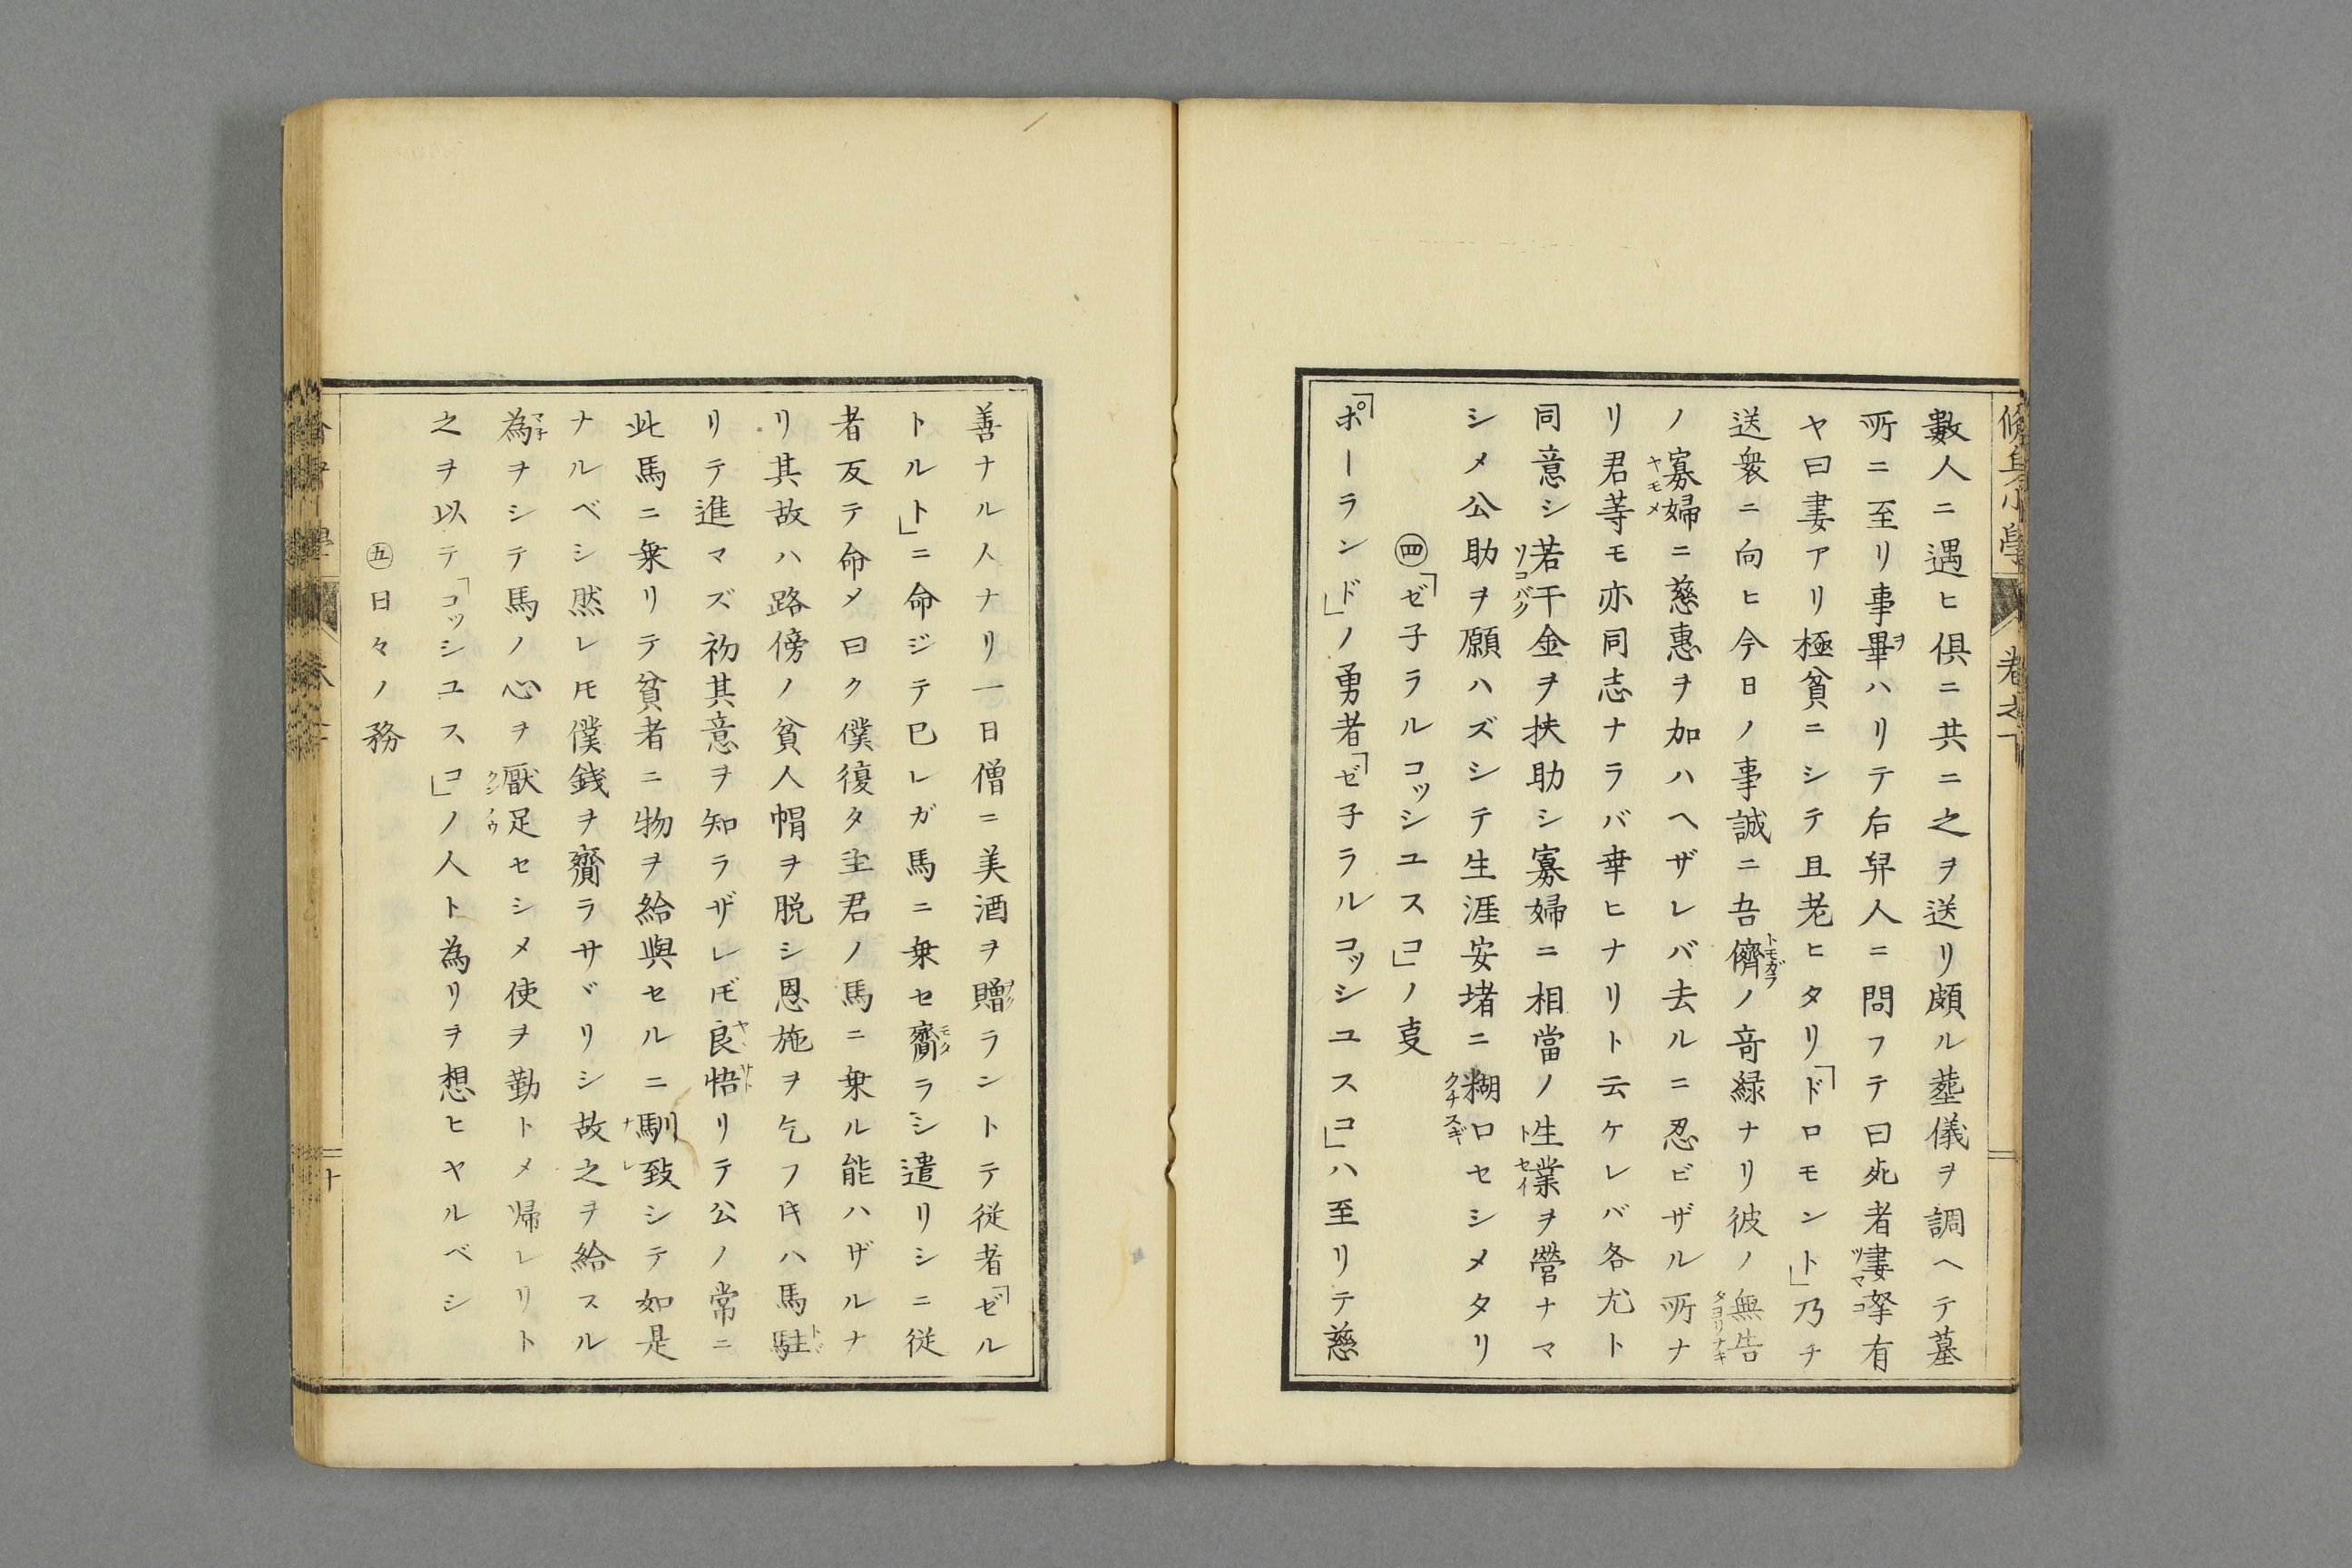 脩身小學 卷之下
數人ニ遇ヒ俱ニ共ニ之ヲ送リ頗ル葬儀ヲ調ヘテ墓
所ニ至リ事畢ハリテ后舁人ニ問フテ曰死者妻孥有
ヤ曰妻アリ極貧ニシテ且老ヒタリ「ドロモント」乃チ
送衆ニ向ヒ今日ノ事誠ニ吾儕ノ竒緑ナリ彼ノ無告
ノ寡婦ニ慈惠ヲ加ハヘザレバ去ルニ忍ビザル所ナ
リ君等モ亦同志ナラバ幸ヒナリト云ケレバ各尤ト
同意シ若干金ヲ扶助シ寡婦ニ相當ノ生業ヲ營ナマ
シメ公助ヲ願ハズシテ生涯安堵ニ糊口セシメタリ
㊃「ゼ子ラルコッシユスコ」ノ叓
「ポーランド」ノ勇者「ゼ子ラルコッシユスコ」ハ至リテ慈
善ナル人ナリ一日僧ニ美酒ヲ贈ラントテ従者「ゼル
トルト」ニ命ジテ巳レガ馬ニ乗セ齎ラシ遣リシニ従
者反テ命メ曰ク僕復タ主君ノ馬ニ乗ル能ハザルナ
リ其故ハ路傍ノ貧人帽ヲ脱シ恩施ヲ乞フ𪜈ハ馬駐
リテ進マズ初其意ヲ知ラザレ𪜈良悟リテ公ノ常ニ
此馬ニ乗リテ貧者ニ物ヲ給與セルニ馴致シテ如是
ナルベシ然レ𪜈僕錢ヲ齎ラサヾリシ故之ヲ給スル
為ヲシテ馬ノ心ヲ厭足セシメ使ヲ勤トメ帰レリト
之ヲ以テ「コッシユスコ」ノ人ト為リヲ想ヒヤルベシ
㊄日々ノ務
十